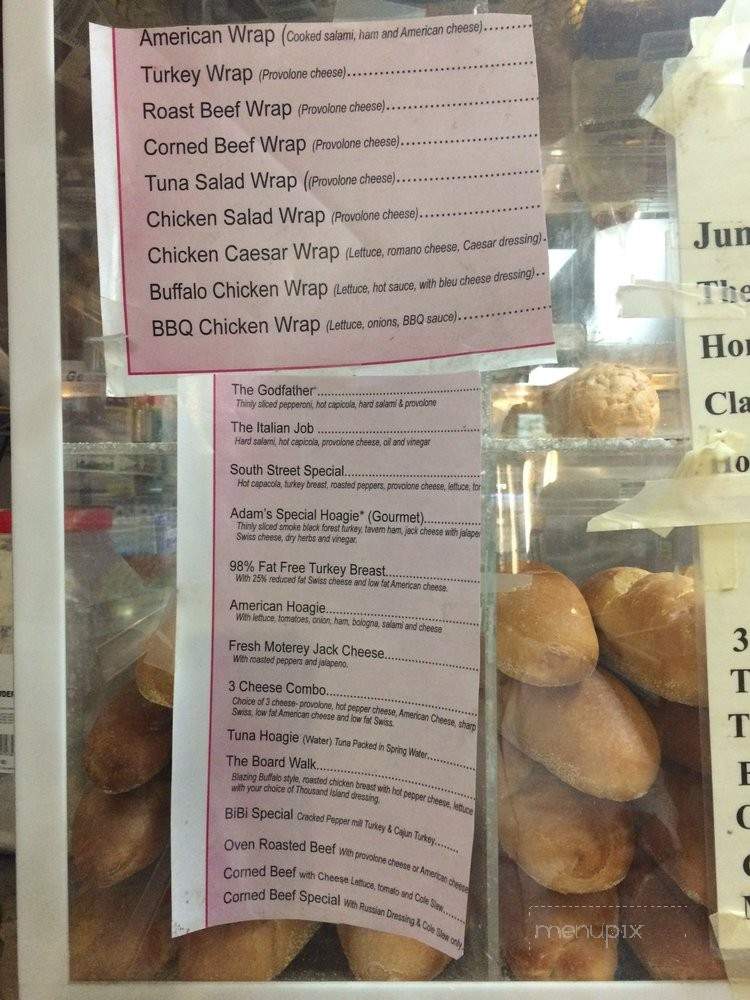 American Wrap (Cooked salami, ham and American cheese)........
Turkey Wrap (Provolone cheese)................................
Roast Beef Wrap (Provolone cheese)..........................
Corned Beef Wrap (Provolone cheese)........................
Tuna Salad Wrap ((Provolone cheese)........................
Chicken Salad Wrap (Provolone cheese)....................
Chicken Caesar Wrap (Lettuce, romano cheese, Caesar dressing).
Buffalo Chicken Wrap (Lettuce, hot sauce, with bleu cheese dressing)..
BBQ Chicken Wrap (Lettuce, onions, BBQ sauce)................
The Godfather..............................
Thinly sliced pepperoni, hot capicola, hard salami & provolone
The Italian Job ..............................
Hard salami, hot capicola, provolone cheese, oil and vinegar
South Street Special..............................
Hot capacola, turkey breast, roasted peppers, provolone cheese, lettuce, tor
Adam's Special Hoagie* (Gourmet)..............
Thinly sliced smoke black forest turkey, tavern ham, jack cheese with jalape
Swiss cheese, dry herbs and vinegar.
98% Fat Free Turkey Breast......................
With 25% reduced fat Swiss cheese and low fat American cheese.
American Hoagie..............................
With lettuce, tomatoes, onion, ham, bologna, salami and cheese
Fresh Moterey Jack Cheese......................
With roasted peppers and jalapeno.
3 Cheese Combo..............................
Choice of 3 cheese- provolone, hot pepper cheese, American Cheese, sharp
Swiss, low fat American cheese and low fat Swiss.
Tuna Hoagie (Water) Tuna Packed in Spring Water..............
The Board Walk..............................
Blazing Buffalo style, roasted chicken breast with hot pepper cheese, lettuce
with your choice of Thousand Island dressing.
BiBi Special Cracked Pepper mill Turkey & Cajun Turkey.......
Oven Roasted Beef With provolone cheese or American cheese
Corned Beef with Cheese Lettuce, tomato and Cole Slaw.......
Corned Beef Special With Russian Dressing & Cole Slaw only
Jun
The
Hor
Cla
Ho
3
T
T
menupix